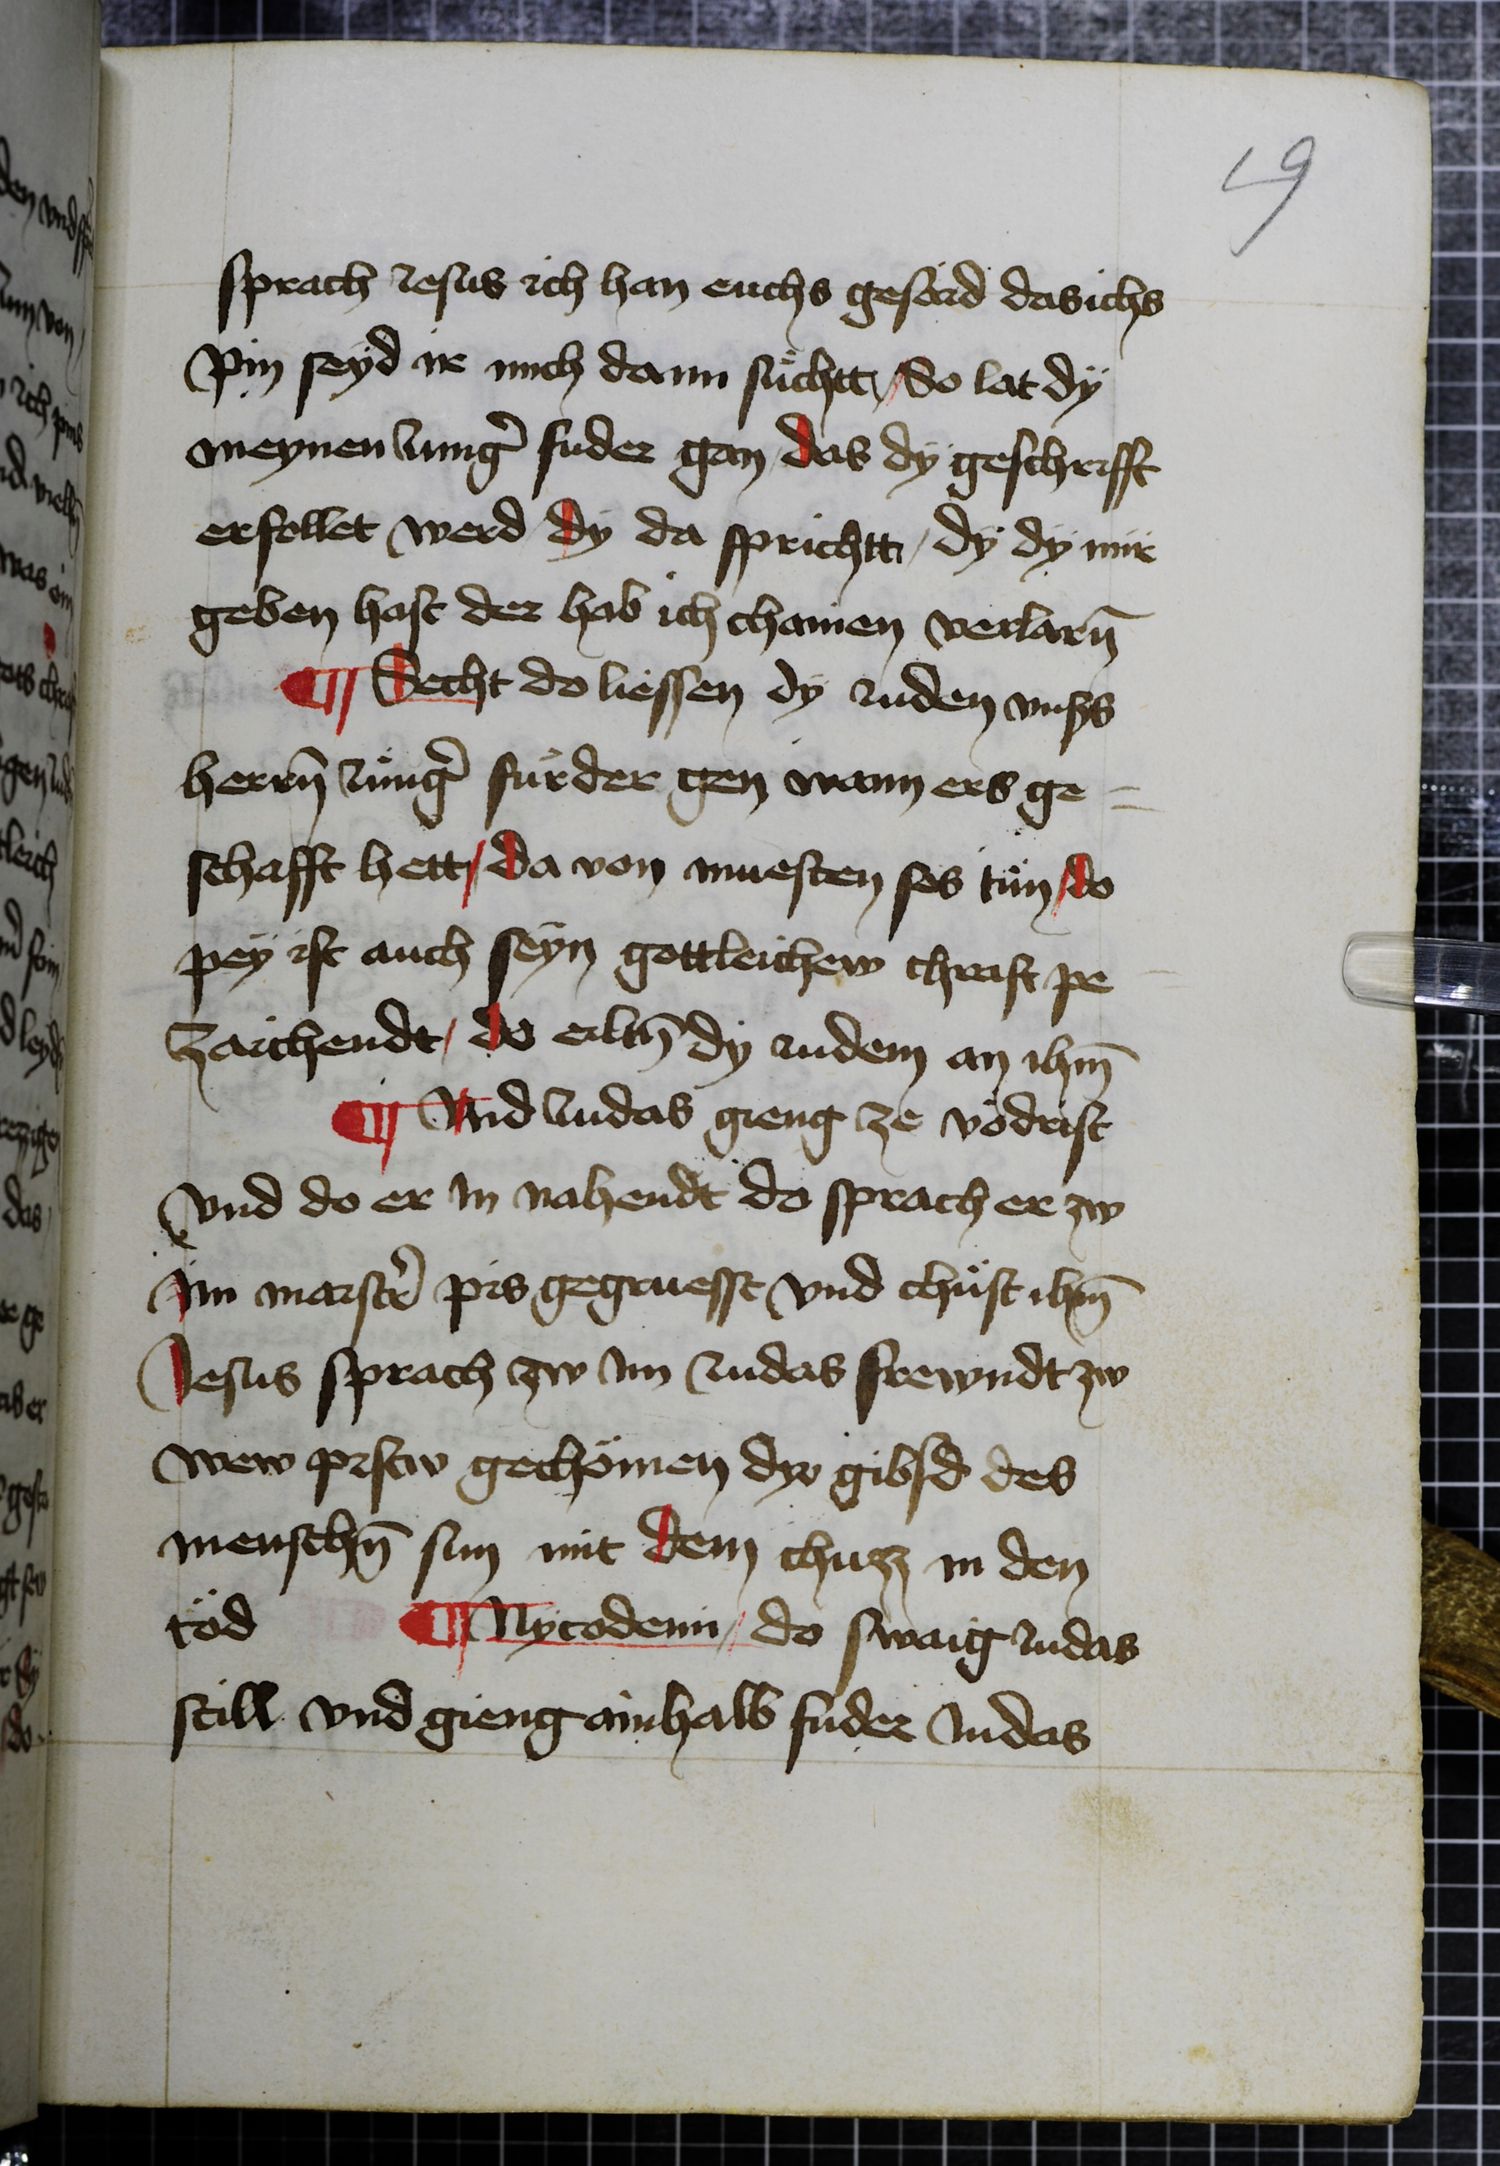 19
sprach Jesus ich han euchs gesaid das ichs
pin seyd ir mich dann süchtt / So lat dÿ
meynen Jungr̄ fuder gan / das dÿ geschrifft
erfollet werd dÿ da sprichtt / dÿ dÿ mir
geben hast der hab ich chainen verlarn̄
¶ Secht do liessen dÿ Juden vnsrs
herrn̄ Jüngr̄ fürder gen wann ers ge =
schafft hett / da von muesten ses tün / do
peÿ ist auch seÿn gottleichew chrafft pe
zaichendt / do eiltn̄ dÿ Judem an ihm̄
¶ Vnd Judas gieng ze vödrist
vnd do er in nahendt do sprach er zw
im maistr̄ pis gegruesst vnd chüst ihm̄
Jesus sprach zw im Judas frewndt zw
wew pistw gechömen dyr gibsd des
menschn̄ sun mit dem chuzz in den
töd ¶ Nycodemi / do swaig Judas
still vnd gieng ainhalb fuder Judas